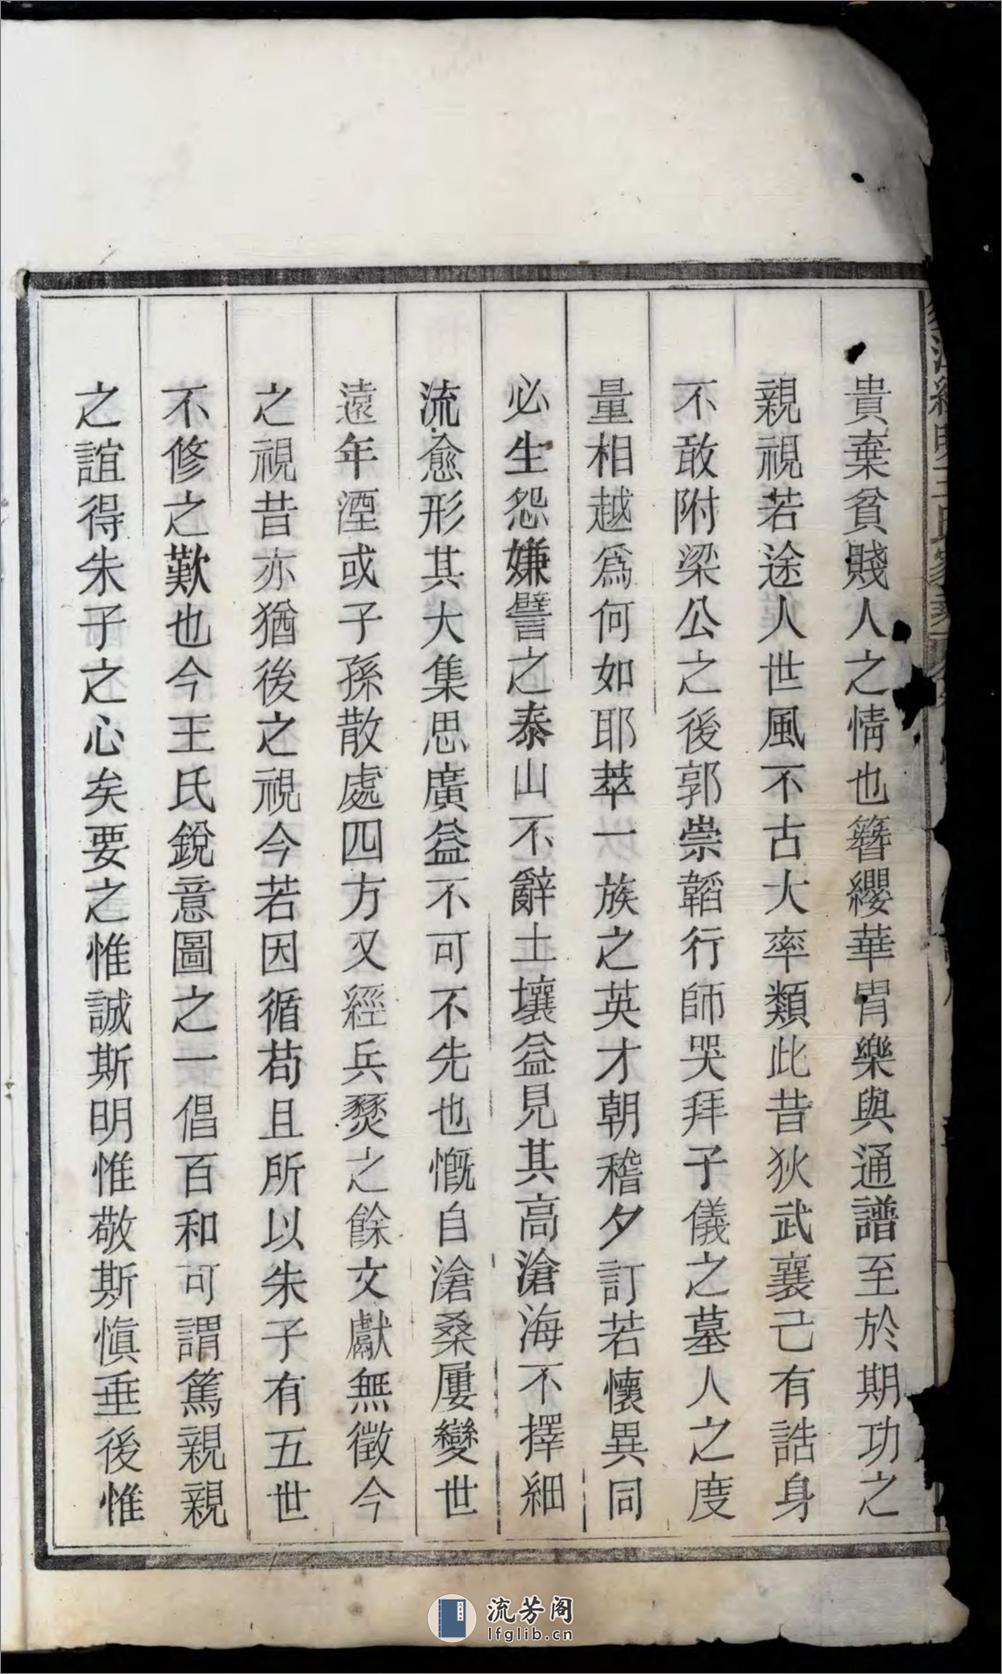 貴棄貧賤人之情也簪纓華胄樂與通譜至於期功之
親視若途人世風不古大率類此昔狄武襄己有誥身
不敢附梁公之後郭崇韜行師哭拜子儀之墓人之度
量相越爲何如耶萃一族之英才朝稽夕訂若懷異同
必生怨嫌譬之泰山不辭土壤益見其高滄海不擇細
流愈形其大集思廣益不可不先也慨自滄桑屢變世
遠年湮或子孫散處四方又經兵燹之餘文獻無徵今
之視昔亦猶後之視今若因循苟且所以朱子有五世
不修之歎也今王氏銳意圖之一倡百和可謂篤親親
之誼得朱子之心矣要之惟誠斯明惟敬斯慎垂後惟
流芳阁
lfglib.cn